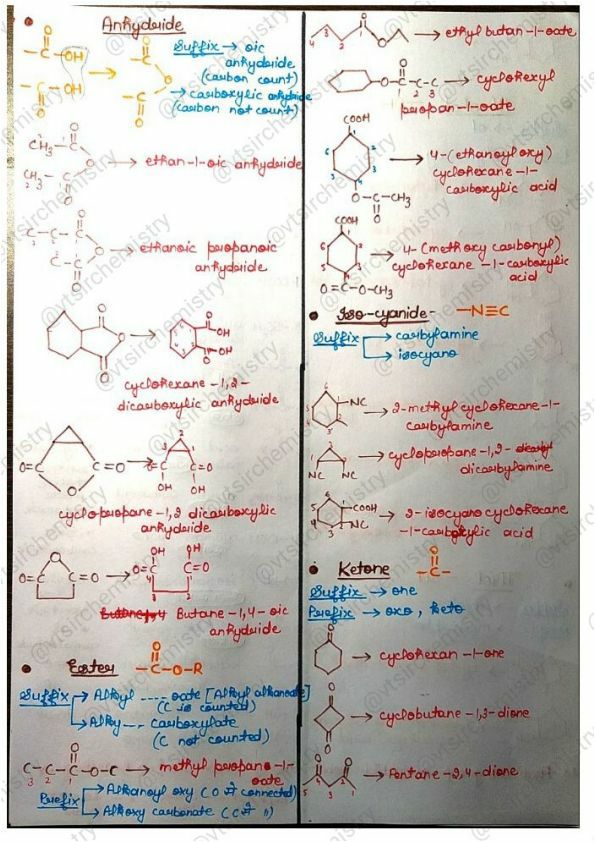 Anhydride
Suffix → oic
anhydride
(carbon count)
→ carboxylic anhydride
(carbon not count)
→ ethan-1-oic anhydride
→ ethanoic propanoic
anhydride
cyclohexane-1,2-
dicarboxylic anhydride
cyclopropane-1,2 dicarboxylic
anhydride
Butane-1,4-oic
anhydride
Ester -C-O-R
Suffix → Alkyl ---- oate [Alkyl alkanoate]
(C is counted)
→ Alky --- carboxylate
(C not counted)
C-C-C-O-C → methyl propane-1-
oate
Prefix → Alkanoyl oxy (O से connected)
→ Alkoxy carbonate (C से ")
→ ethyl butan-1-oate
→ cyclohexyl
propan-1-oate
→ 4-(ethanoyloxy)
cyclohexane-1-
carboxylic acid
→ 4-(methoxy carbonyl)
cyclohexane-1-carboxylic
acid
Iso-cyanide- -N≡C
Suffix → carbylamine
→ isocyano
→ 2-methyl cyclohexane-1-
carbylamine
→ cyclopropane-1,2-
dicarbylamine
→ 2-isocyano cyclohexane
-1-carboxylic acid
Ketone
Suffix → one
Prefix → oxo, keto
→ cyclohexan-1-one
→ cyclobutane-1,3-dione
→ Pentane-2,4-dione
@vtsirchemistry